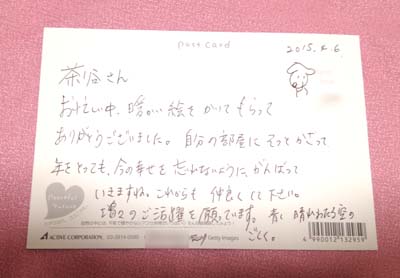 post card
2015. 4. 6
茶谷さん
お忙しい中、暖かい絵をかいてもらって
ありがとうございました。自分の部屋にそっとかざって
年をとっても、今の幸せを忘れないように、がんばって
いきますね。これからも仲良くして下さい。
益々のご活躍を願っています。青く晴れわたる空の
ごとく。
Peaceful
ACTIVE CORPORATION. 03-3914-
Getty Images
4 990012 132959